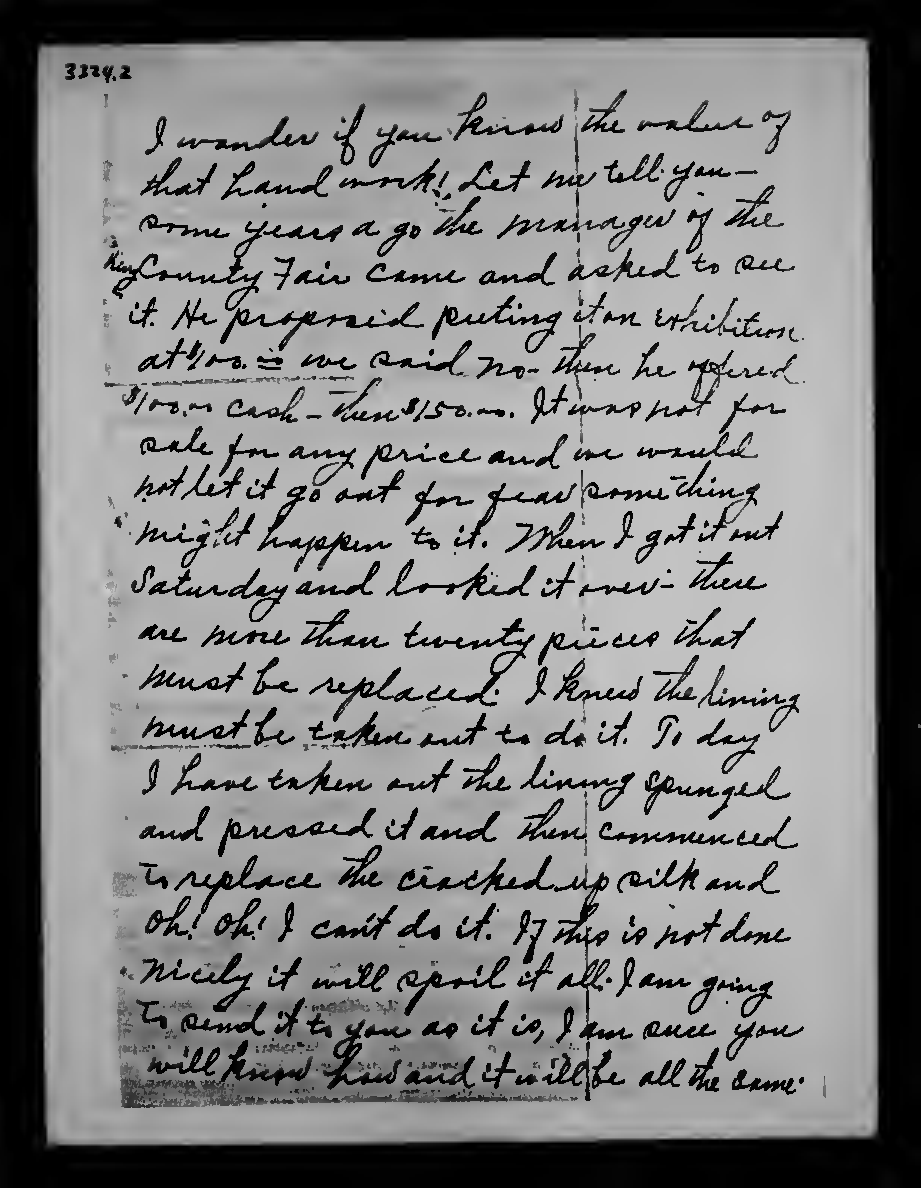 3324.2
I wonder if you know the value of
that hand work! Let me tell you—
some years a go the manager of the
King County Fair came and asked to see
it. He proposed puting it on exhibition
at $100.00 we said no- then he offered
$100.00 cash – then $150.00. It was not for
sale for any price and we would
not let it go out for fear something
might happen to it. When I got it out
Saturday and looked it over- there
are more than twenty pieces that
must be replaced. I knew the lining
must be taken out to do it. To day
I have taken out the lining spunged
and pressed it and then commenced
to replace the cracked up silk and
Oh! Oh! I can't do it. If this is not done
nicely it will spoil it all. I am going
to send it to you as it is, I am sure you
will know how and it will be all the same.